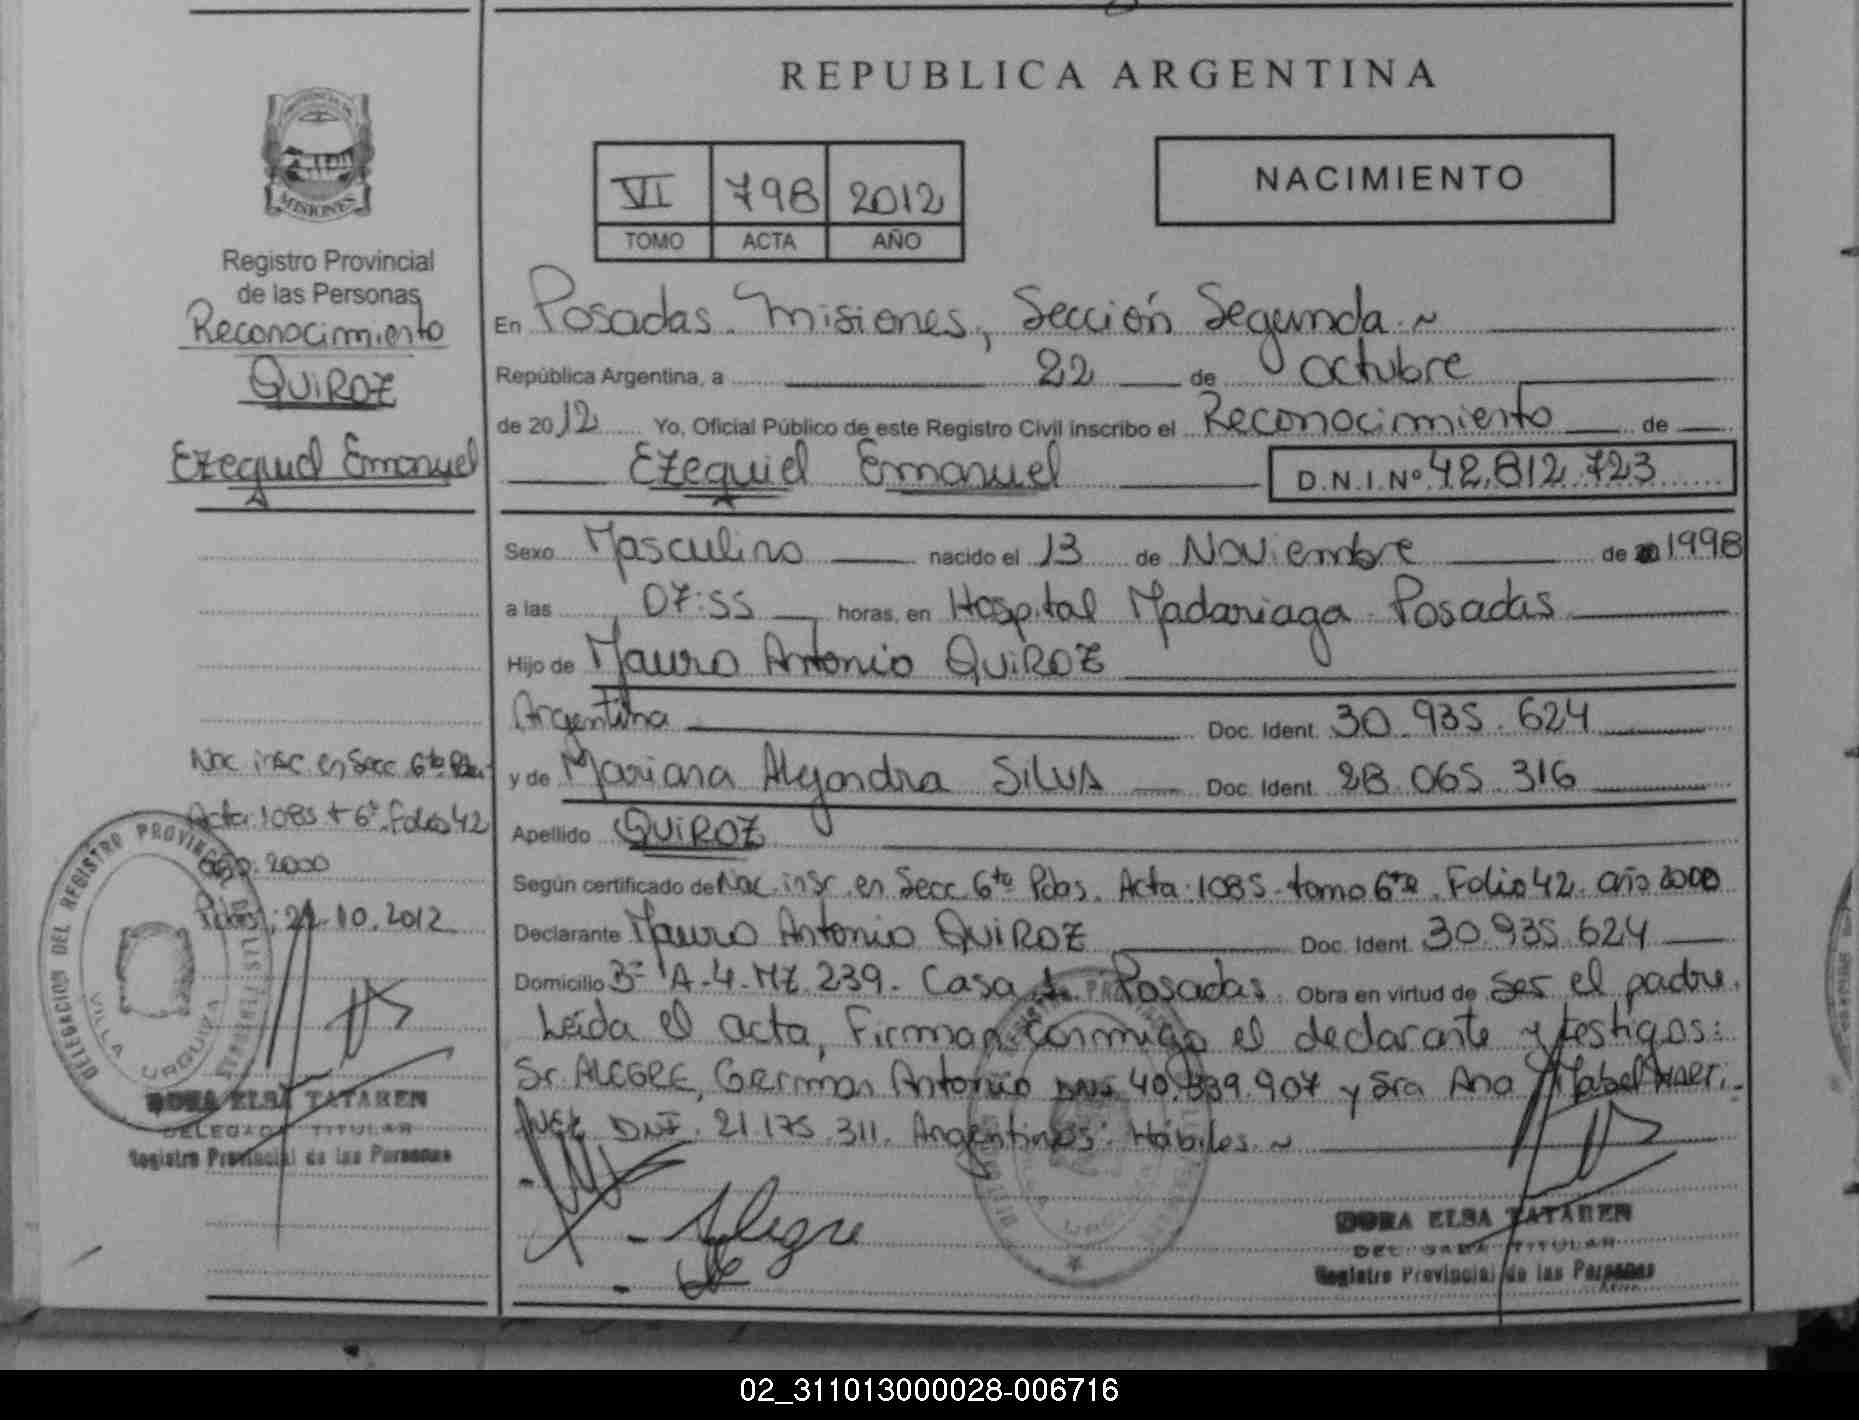 REPUBLICA ARGENTINA
PROVINCIA DE
MISIONES
VI 798 2012
TOMO ACTA AÑO
NACIMIENTO
Registro Provincial
de las Personas
Reconocimiento
QUIROZ
Ezequiel Emanuel
En Posadas. Misiones, Sección Segunda.~
República Argentina, a 22 de octubre
de 2012 Yo, Oficial Público de este Registro Civil inscribo el Reconocimiento de
Ezequiel Emanuel D.N.I.Nº 42.812.723
Sexo Masculino nacido el 13 de Noviembre de 1998
a las 07:55 horas, en Hospital Madariaga Posadas
Hijo de Mauro Antonio QUIROZ
Argentina Doc. Ident. 30.935.624
y de Mariana Alejandra SILVA Doc. Ident. 28.065.316
Apellido QUIROZ
Según certificado de Nac. insc. en Secc. 6ta Pdas. Acta 1085 tomo 6to. Folio 42. año 2000
Declarante Mauro Antonio QUIROZ Doc. Ident. 30.935.624
Domicilio Bº A-4. MZ. 239. Casa Posadas. Obra en virtud de ser el padre.
Leída el acta, Firman conmigo el declarante y testigos:
Sr. ALEGRE, German Antonio DNI 40.339.907 y Sra Ana Mabel
DNI. 21.175.311. Argentinos. Hábiles ~
Alegre
Nac insc en Secc 6ta Pdas
Acta 1085 t 6º. Folio 42
año. 2000
Pdas; 22.10.2012
DELEGACION DEL REGISTRO PROVINCIAL DE LAS PERSONAS
VILLA URQUIZA
DORA ELSA TATAREN
DELEGADA TITULAR
Registro Provincial de las Personas
DORA ELSA TATAREN
DELEGADA TITULAR
Registro Provincial de las Personas
02_311013000028-006716